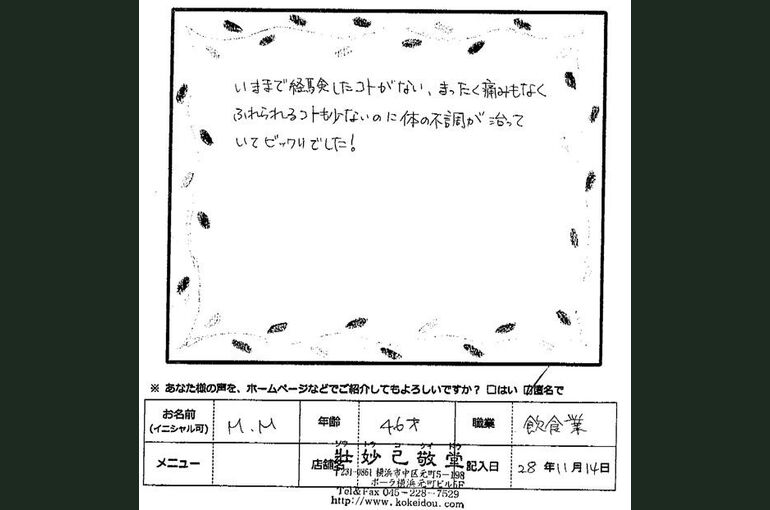 いままで経験したコトがない、まったく痛みもなく
ふれられるコトも少ないのに体の不調が治って
いてビックリでした!
※ あなた様の声を、ホームページなどでご紹介してもよろしいですか? □はい ☑匿名で
お名前 (イニシャル可) M.M 年齢 46才 職業 飲食業
メニュー 店舗名 記入日 28年11月14日
ソウ トウ コ ケイ ドウ
壮妙己敬堂
〒231-0861 横浜市中区元町5-198
ポーラ横浜元町ビル1F
Tel&Fax 045-228-7529
http://www.kokeidou.com/